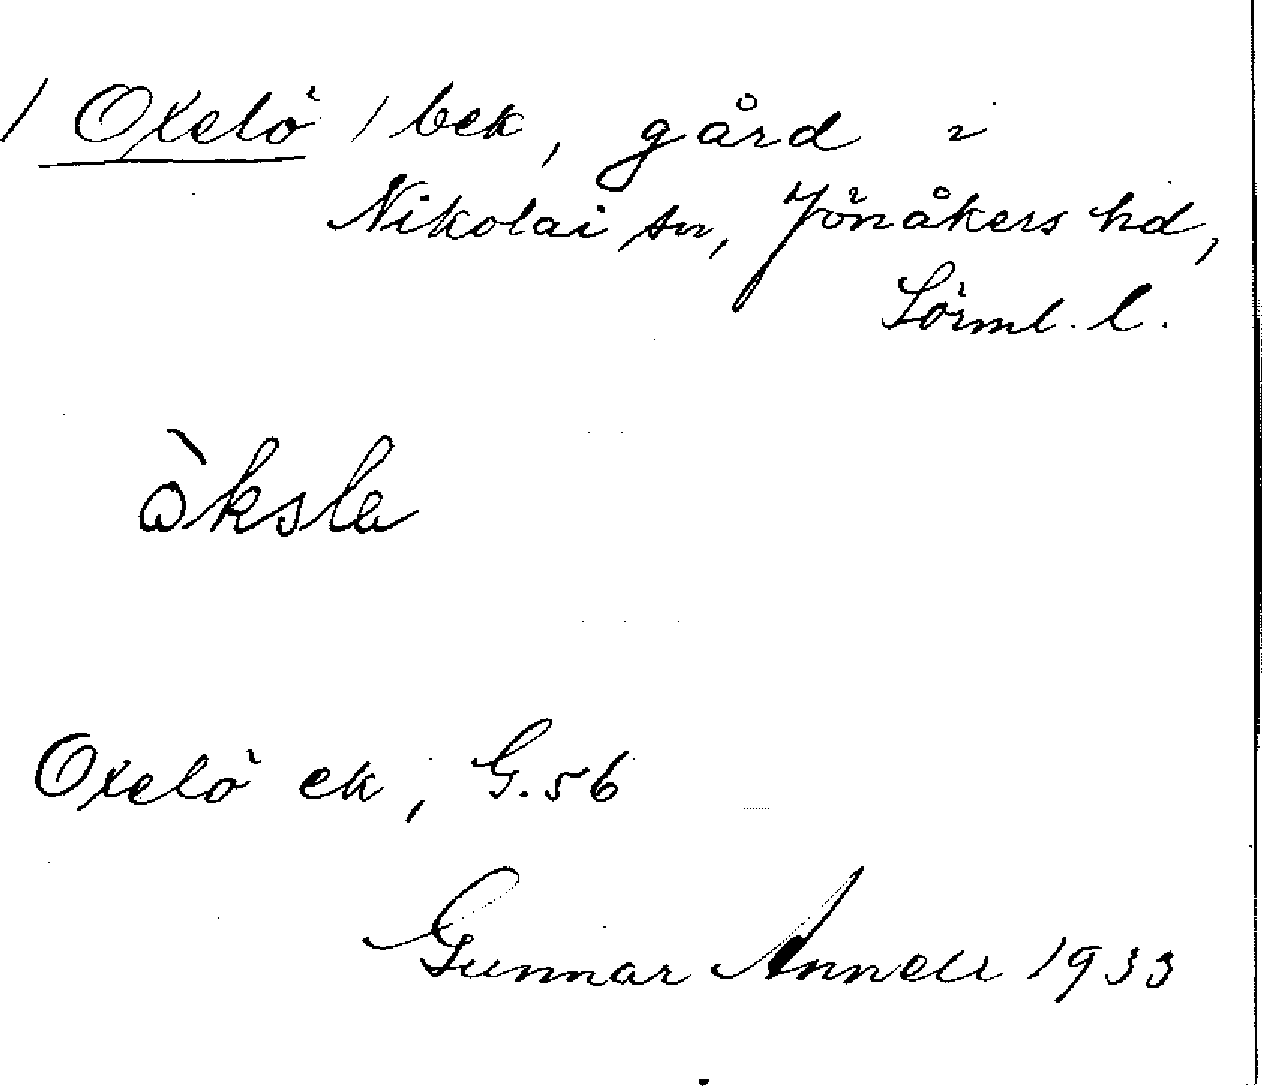 / Oxelö / bek, gård i
Nikolai sn, Jönåkers hd,
Sörml. l.
òksla
Oxelö ek, G.56
Gunnar Annell 1933